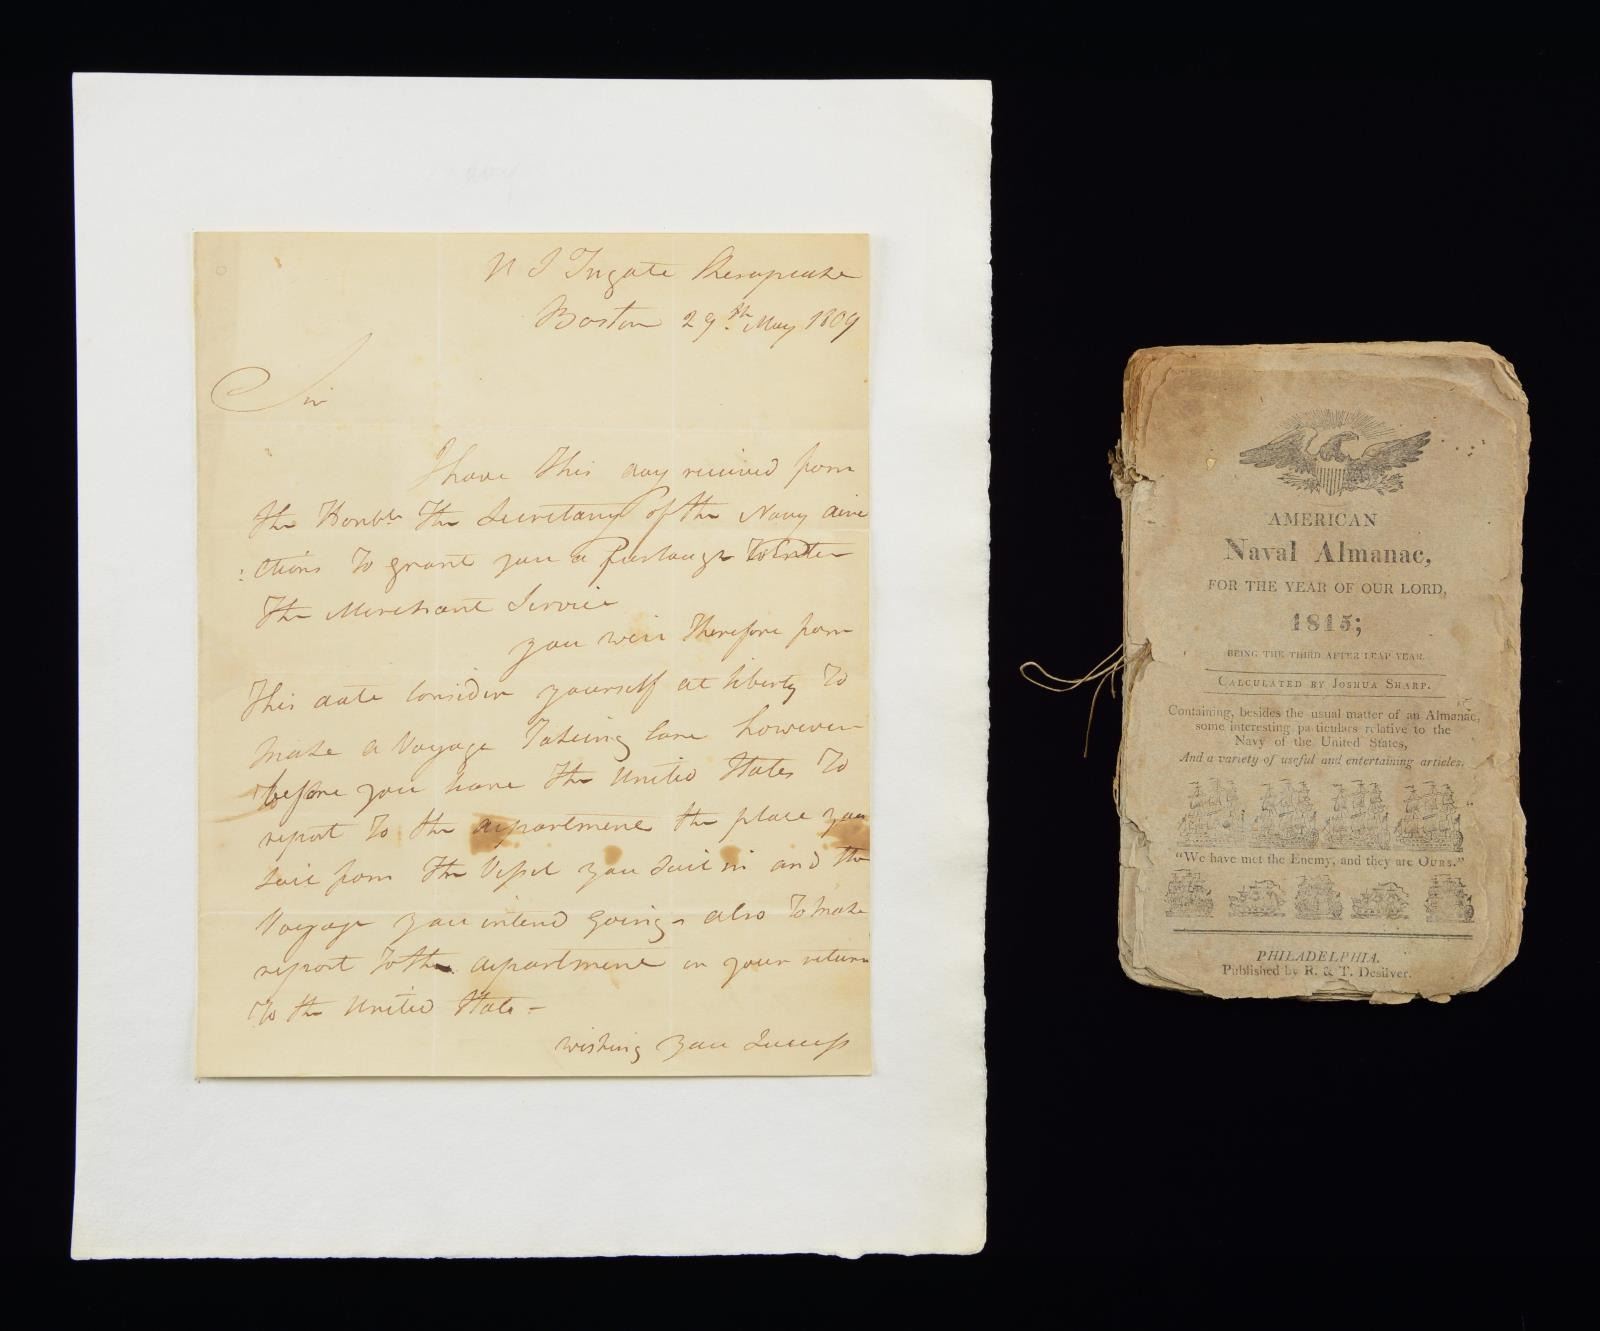 U S Frigate Chesapeake
Boston 29th May 1809
Sir
I have this day received from
the Honble the Secretary of the Navy dire
: ctions to grant you a Furlough to Enter
the Merchant Service
you will therefore from
this date consider yourself at liberty to
make a Voyage Takeing Care however
before you leave the United States to
report to the department the place you
sail from the Vessel you sail in and the
Voyage you intend going - also to make
report to the department on your return
to the United States -
wishing you Success
AMERICAN
Naval Almanac,
FOR THE YEAR OF OUR LORD,
1815;
BEING THE THIRD AFTER LEAP YEAR.
CALCULATED BY JOSHUA SHARP.
Containing, besides the usual matter of an Almanac,
some interesting particulars relative to the
Navy of the United States,
And a variety of useful and entertaining articles.
"We have met the Enemy, and they are OURS."
PHILADELPHIA.
Published by R. & T. Desilver.